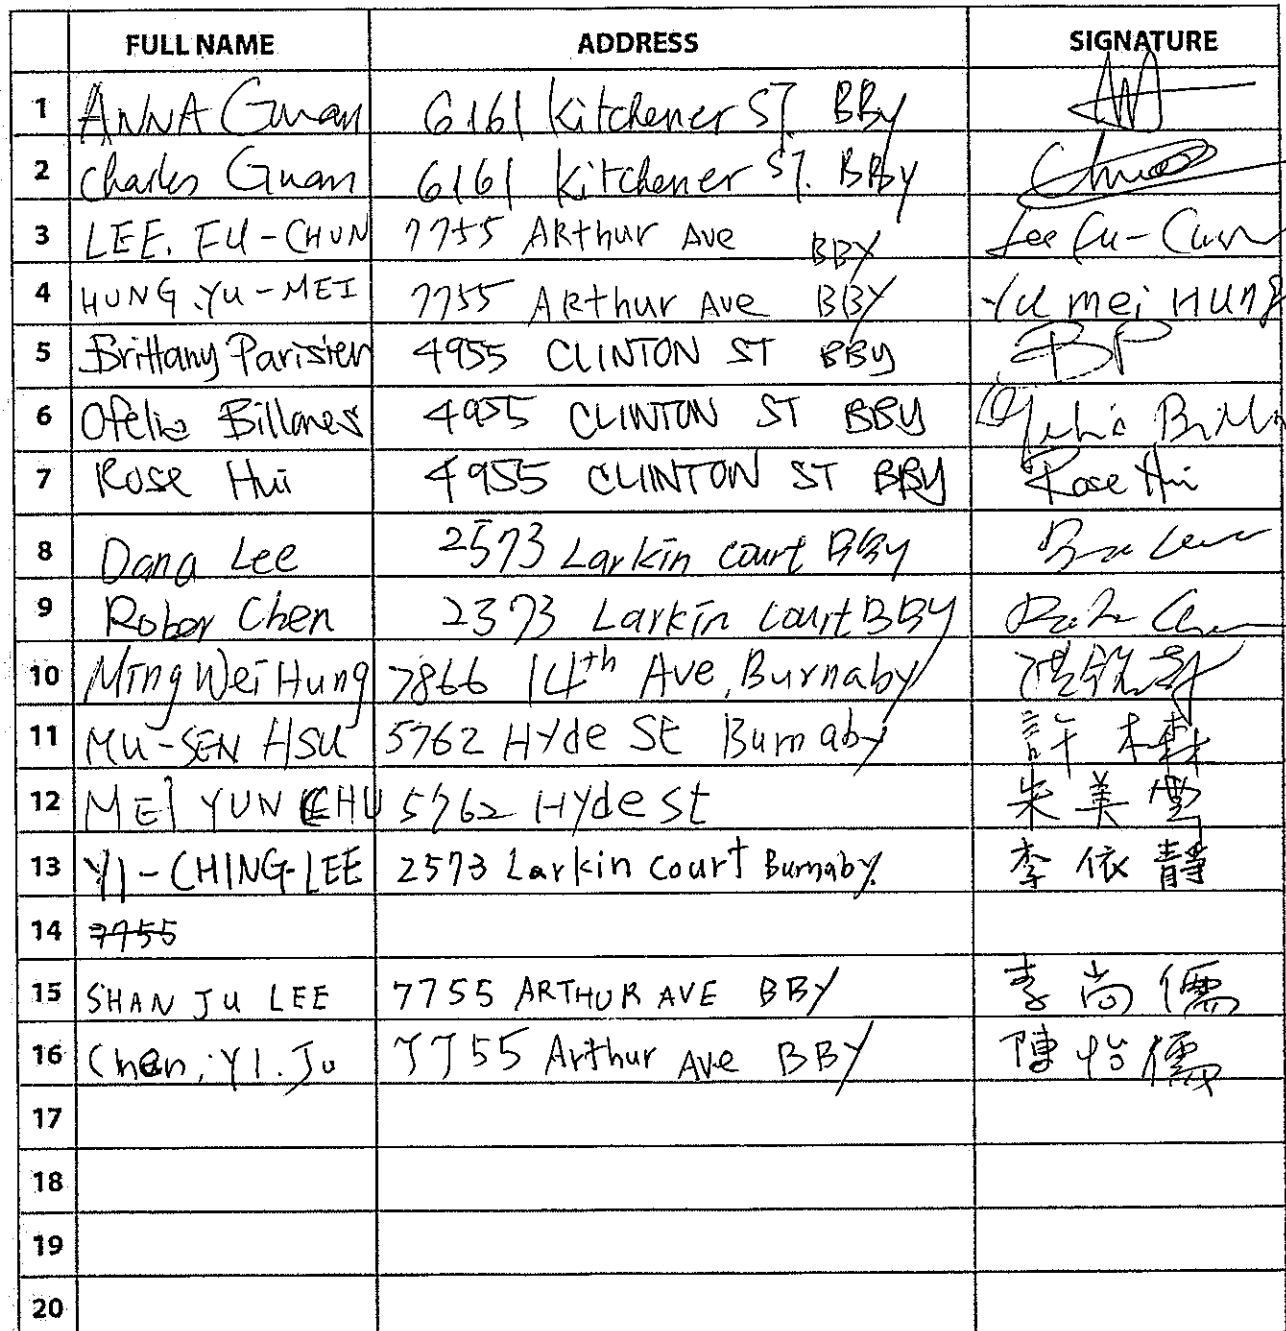 FULL NAME ADDRESS SIGNATURE
1 ANNA Guan 6161 Kitchener ST. BBy
2 Charles Guan 6161 Kitchener ST. BBy
3 LEE. FU-CHUN 7755 ARthur Ave BBY Lee Fu-Chun
4 HUNG YU-MEI 7755 ARthur Ave BBY Yu mei HUng
5 Brittany Parisien 4955 CLINTON ST BBY BP
6 Ofelia Billones 4955 CLINTON ST BBY
7 Rose Hui 4955 CLINTON ST BBY Rose Hui
8 Dana Lee 2573 Larkin court BBy
9 Rober Chen 2573 Larkin court BBY
10 Ming Wei Hung 7866 14th Ave, Burnaby
11 MU-SEN HSU 5762 Hyde St Burnaby 許木森
12 MEI YUN CHU 5762 Hyde st 朱美雲
13 YI-CHING-LEE 2573 Larkin court Burnaby. 李依靜
14 7755
15 SHAN JU LEE 7755 ARTHUR AVE BBY 李尚儒
16 Chen, YI. Ju 7755 Arthur Ave BBY 陳怡儒
17
18
19
20